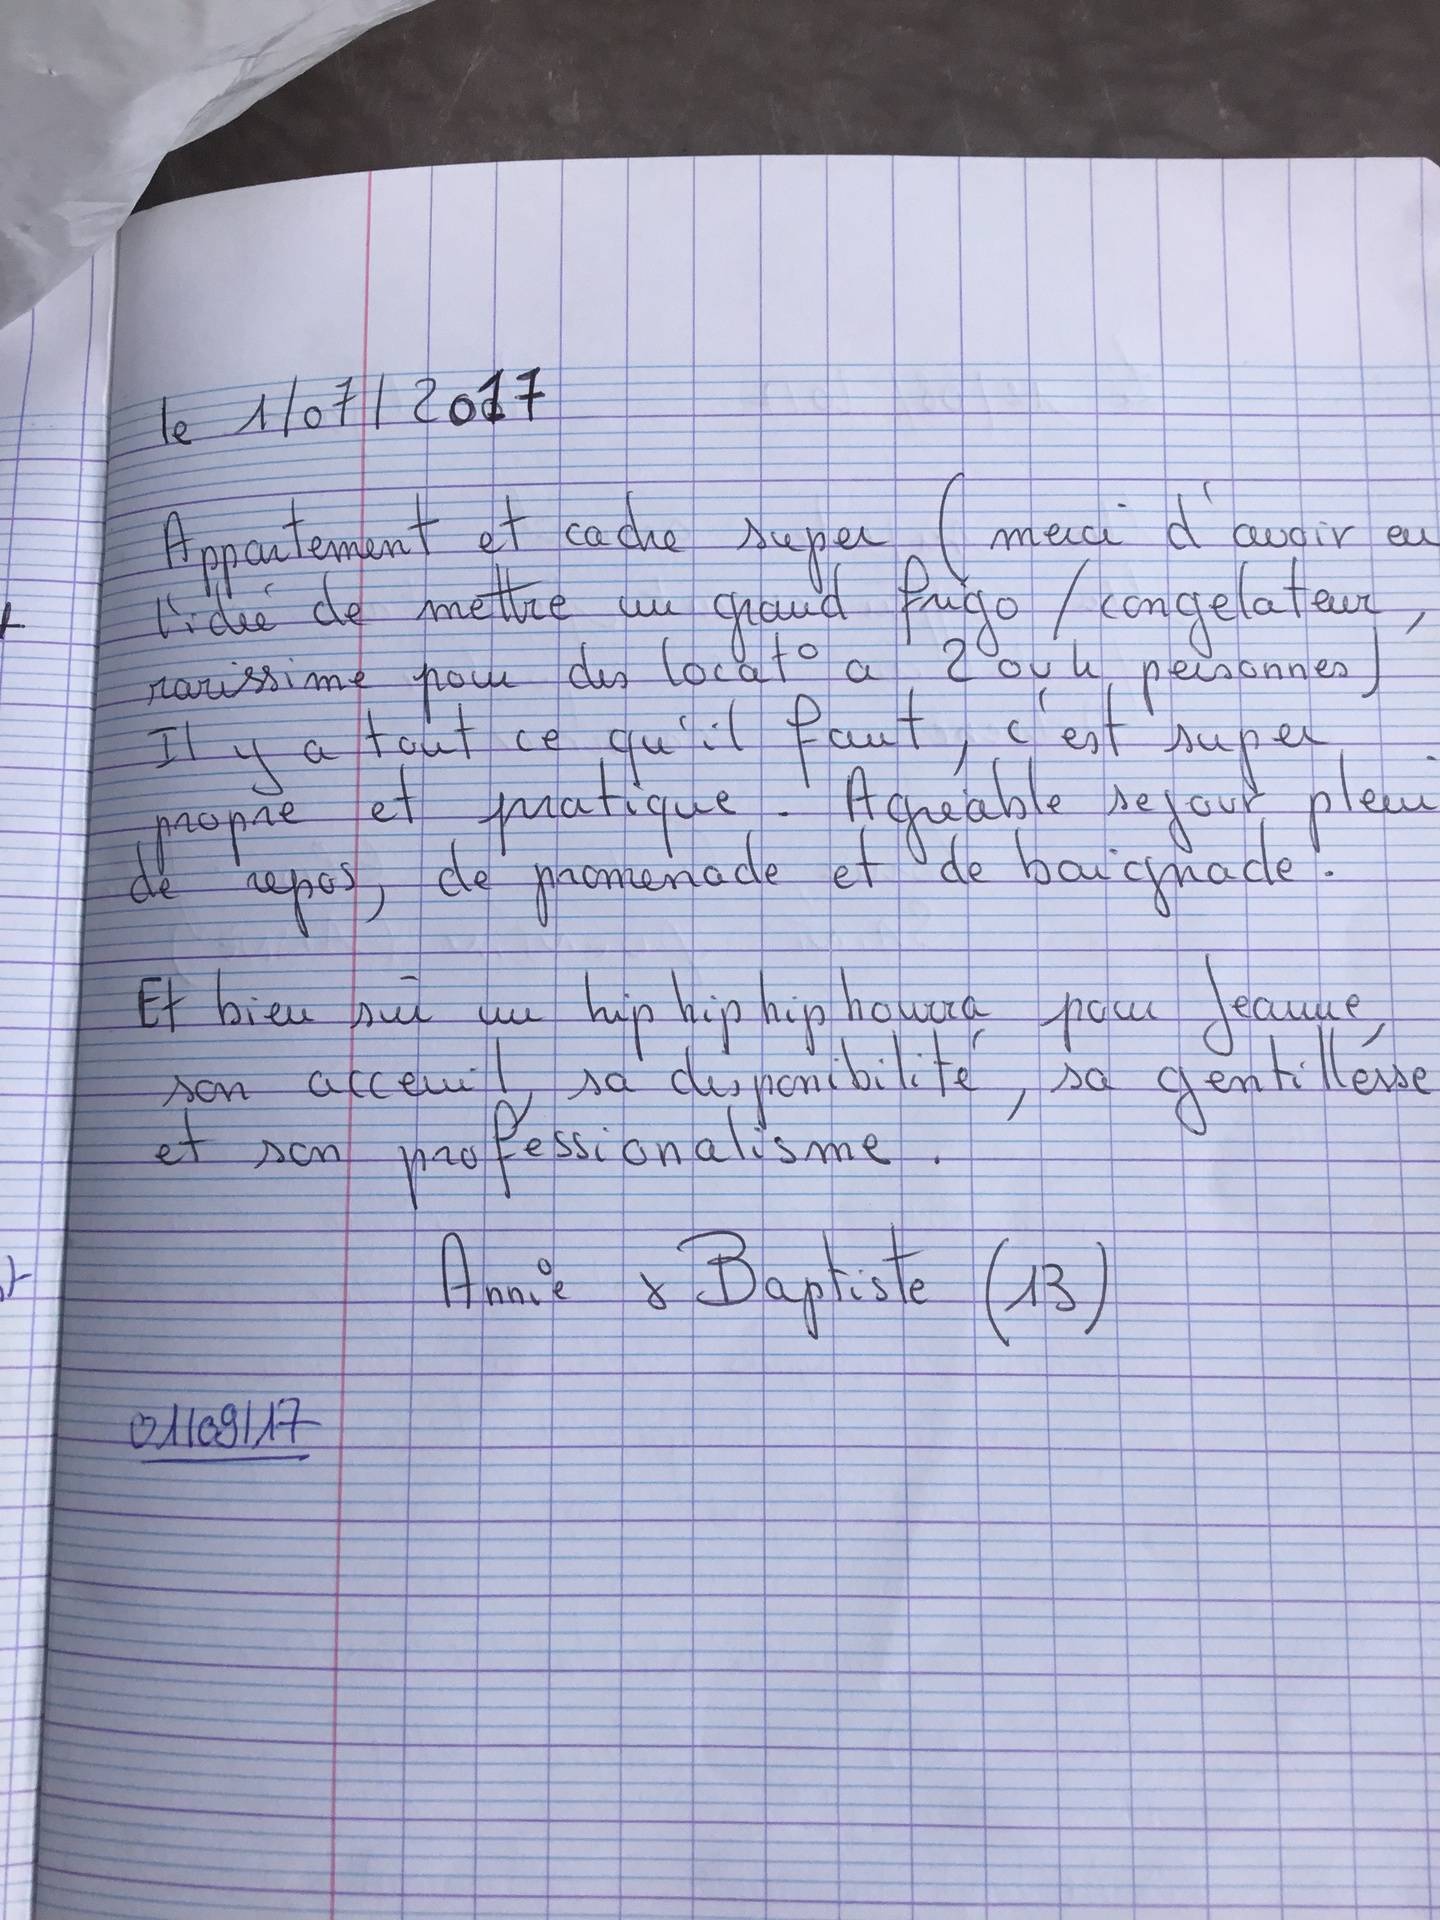 le 1/07/2017
Appartement et cadre super (merci d'avoir eu
l'idée de mettre un grand frigo/congelateur,
rarissime pour des locat° a 2 ou 4 personnes)
Il y a tout ce qu'il faut, c'est super
propre et pratique. Agréable sejour plein
de repos, de promenade et de baignade.
Et bien sûr un hip hip hip hourra pour Jeanne,
son acceuil, sa disponibilité, sa gentillésse
et son professionalisme.
Annie & Baptiste (13)
01/09/17